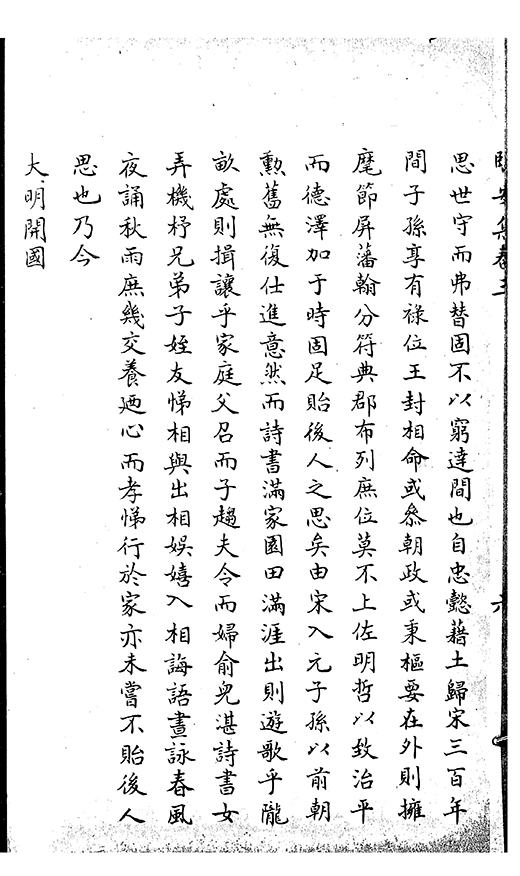 思世守而弗替固不以窮達間也自忠懿藉土歸宋三百年
間子孫享有祿位王封相命或叅朝政或秉樞要在外則擁
麾節屏藩翰分符典郡布列庶位莫不上佐明哲以致治平
而德澤加于時固足貽後人之思矣由宋入元子孫以前朝
勲舊無復仕進意然而詩書滿家園田滿涯出則遊歌乎隴
畝處則揖讓乎家庭父召而子趨夫令而婦俞兒湛詩書女
弄機杼兄弟子姪友悌相與出相娛嬉入相誨語晝詠春風
夜誦秋雨庶幾交養廼心而孝悌行於家亦未嘗不貽後人
思也乃今
大明開國